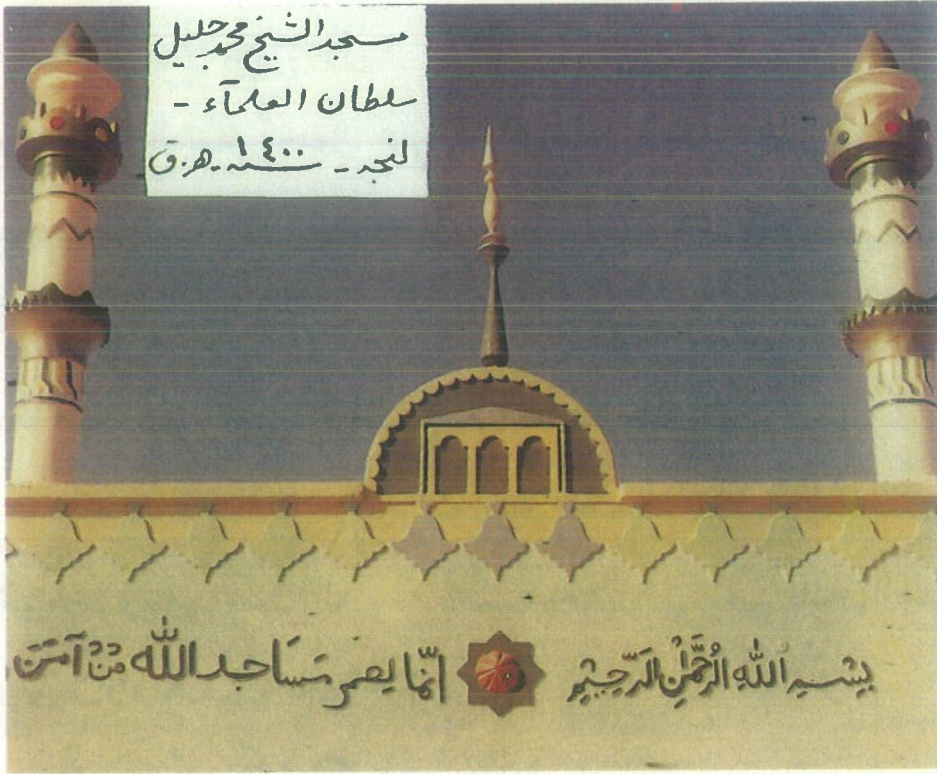 مسجد الشيخ محمد جليل
سلطان العلمآء -
لنجه - سنه ١٤٠٠ هـ.ق
بِسْمِ اللهِ الرَّحْمٰنِ الرَّحِيْمِ إنّما يعمر مَسَاجد الله مَنْ آمَنَ